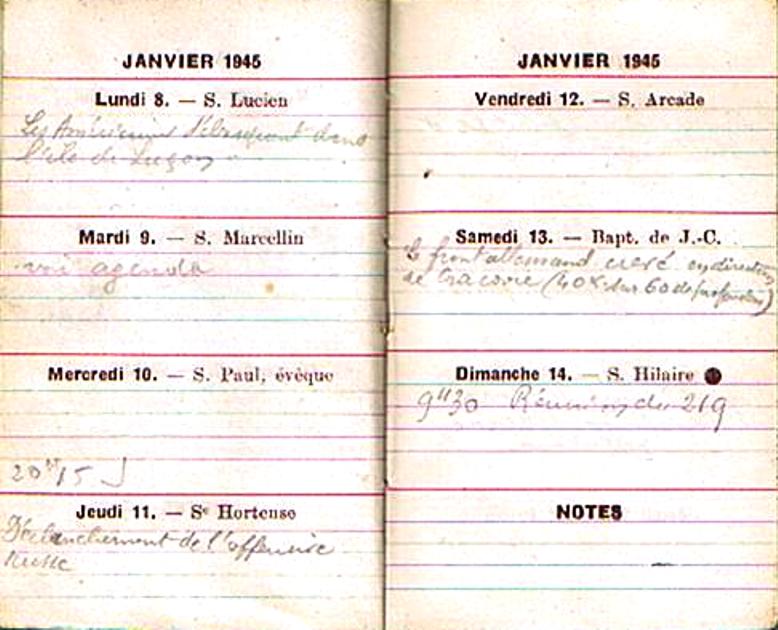 JANVIER 1945
Lundi 8. — S. Lucien
Les Américains débarquent dans
l'île de Luçon
Mardi 9. — S. Marcellin
voir agenda
Mercredi 10. — S. Paul, évêque
20H15
Jeudi 11. — Se Hortense
Déclanchement de l'offensive
russe
JANVIER 1945
Vendredi 12. — S. Arcade
Samedi 13. — Bapt. de J.-C.
le front allemand crevé en direction
de Cracovie (40K sur 60 de profondeur)
Dimanche 14. — S. Hilaire
9H30 Réunion du 219
NOTES